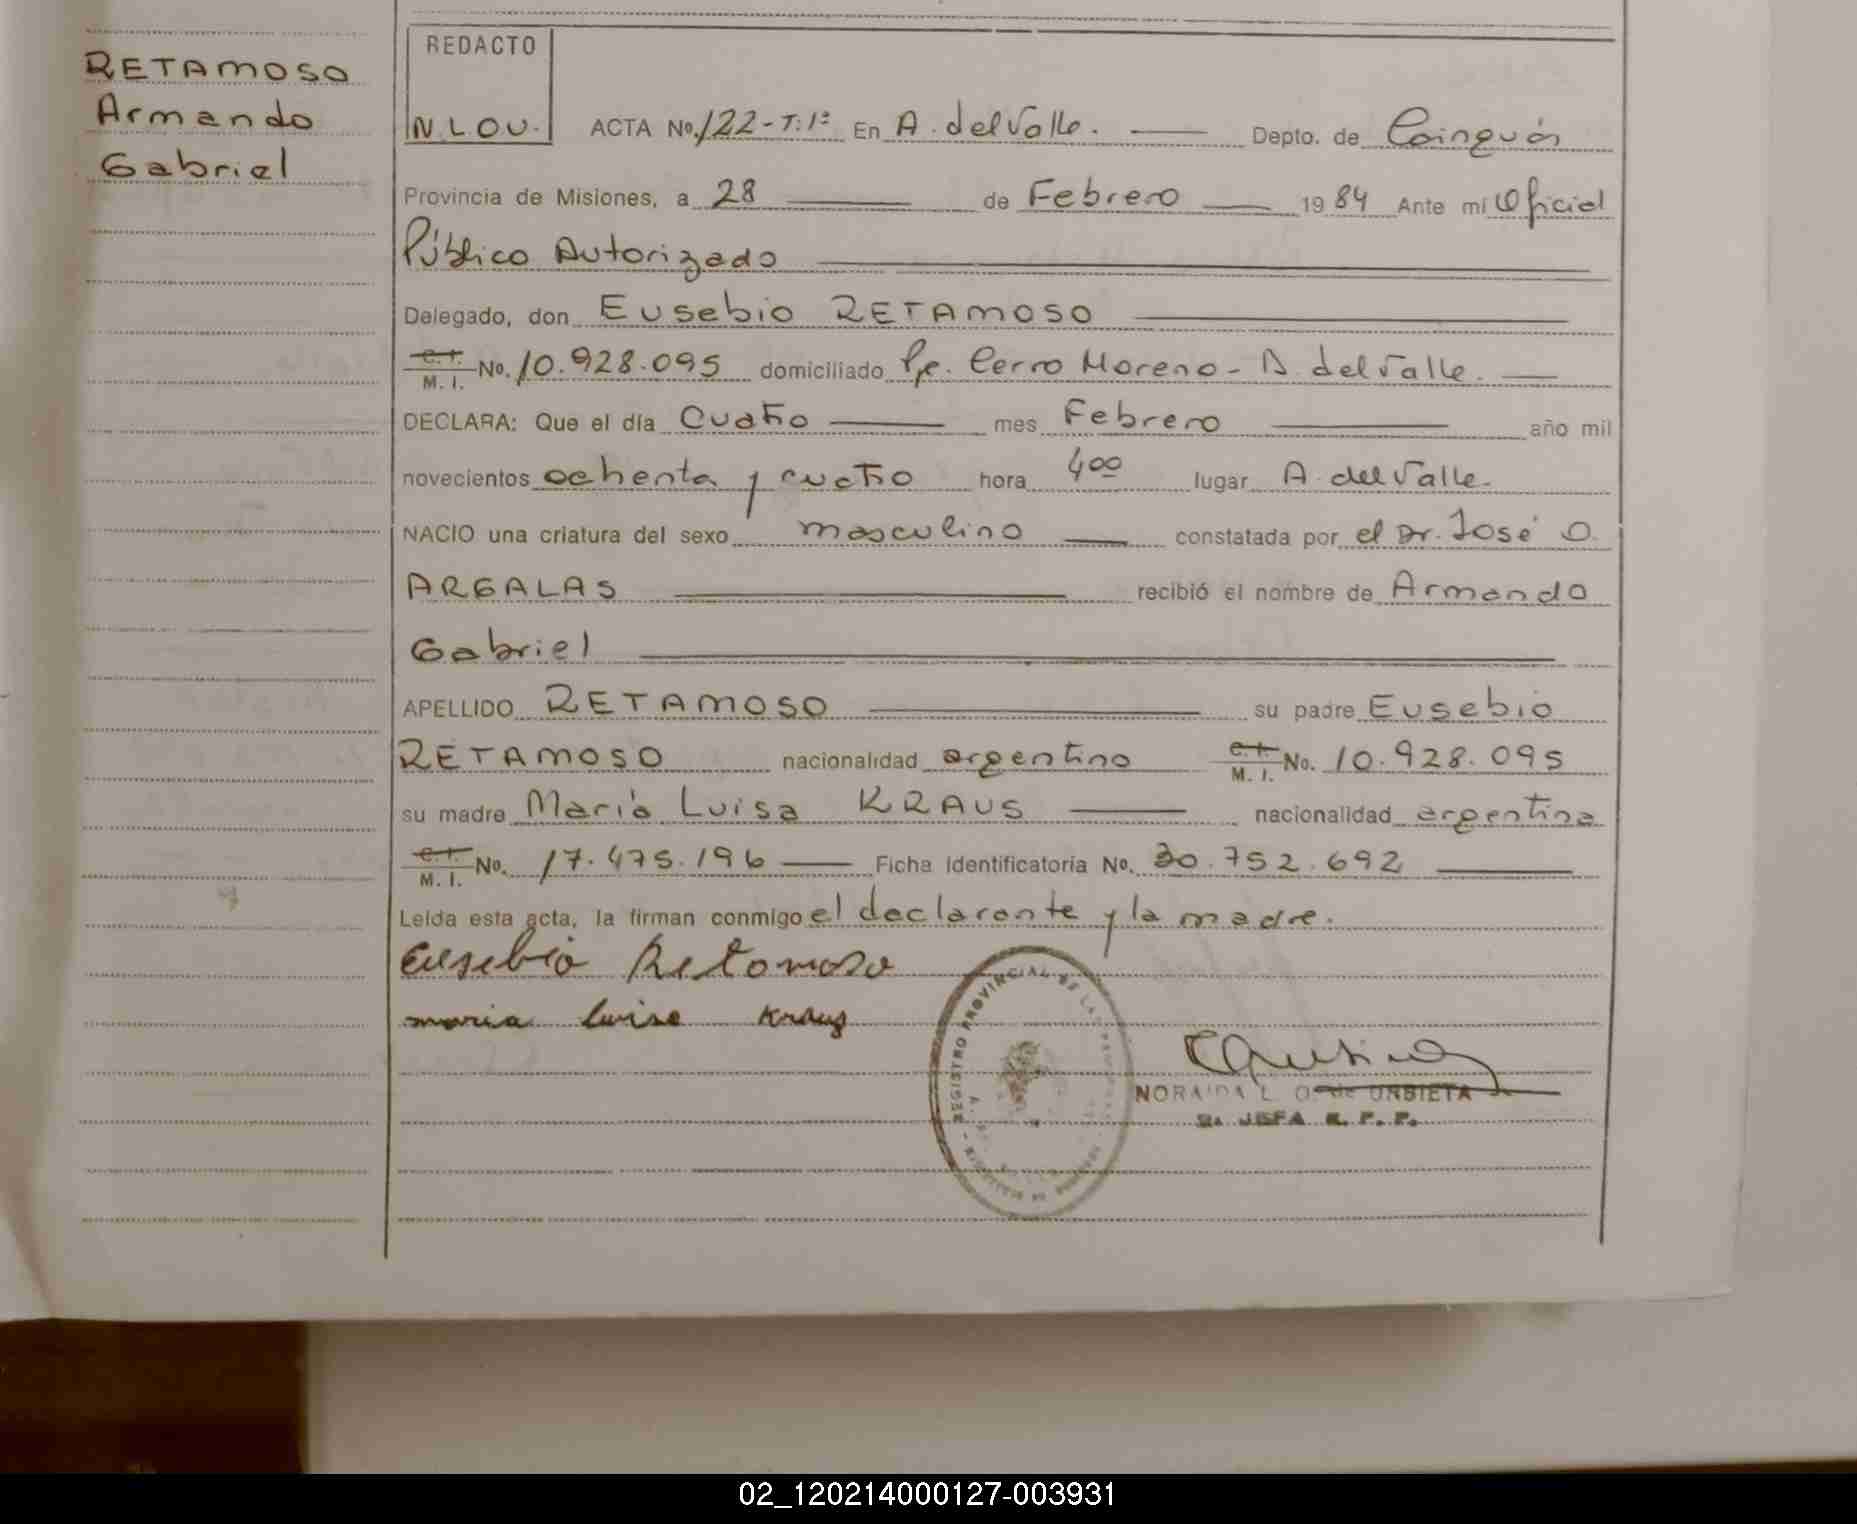 RETAMOSO
Armando
Gabriel
REDACTO
N.L.O.U.
ACTA No. 122-T:1º En A. del Valle. Depto. de Cainguás
Provincia de Misiones, a 28 de Febrero 1984 Ante mí Oficial
Público Autorizado
Delegado, don Eusebio RETAMOSO
C.I. M.I. No. 10.928.095 domiciliado Pje. Cerro Moreno - A. del Valle.
DECLARA: Que el día Cuatro mes Febrero año mil
novecientos ochenta y cuatro hora 4oo lugar A. del Valle.
NACIO una criatura del sexo masculino constatada por el Dr. José O.
ARGALAS recibió el nombre de Armando
Gabriel
APELLIDO RETAMOSO su padre Eusebio
RETAMOSO nacionalidad argentino C.I. M.I. No. 10.928.095
su madre María Luisa KRAUS nacionalidad argentina
C.I. M.I. No. 17.475.196 Ficha Identificatoria No. 30.752.692
Leída esta acta, la firman conmigo el declarante y la madre.
Eusebio Retamoso
maria luisa Kraus
REGISTRO PROVINCIAL DE LAS PERSONAS
NORAIDA L. O. de URBIETA
JEFA R. P. P.
02_120214000127-003931